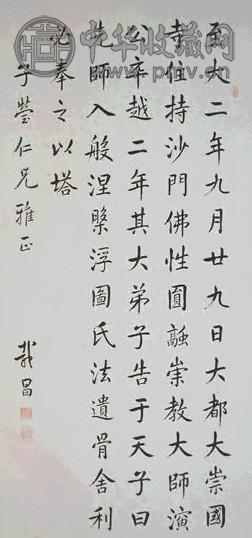 中华收藏网
至大二年九月廿九日大都大崇國
寺住持沙門佛性圓融崇教大師演
公卒越二年其大弟子告于天子曰
先師入般涅槃浮圖氏法遺骨舍利
必奉之以塔
子瑩仁兄雅正
昌